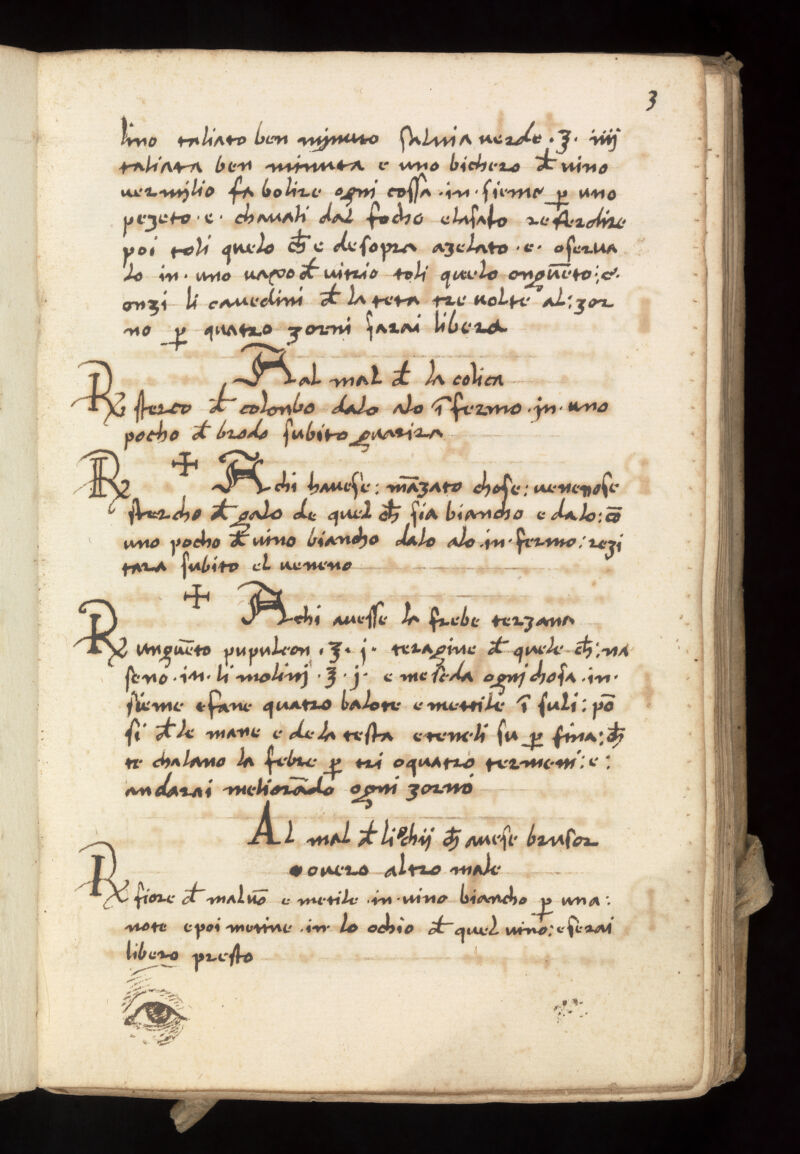 3
lino taliato ben minuto salvia verde . ʒ . iiij
taliata ben minuta e uno bichero đ vino
vermilio fa bolire ogni cossa .in. sieme ꝑ uno
pezeto .e. chavali dal focho e lasalo referdire
poi toli quelo cħ e desopra azelato .e. oserva
lo in. uno vaxo đ vitrio toli quelo ongūeto: e.
onzi li cavedini đ la teta tre volte al: zor
no ꝑ quatro zorni sarai libera
Aal mal đ la colica
℞ sterco đ colonbo dalo alo īfermo .in. uno
pocho đ brodo subito guarira
+ Achi havese: māzato chose: venenose
℞ stercho đ galo de quel cħ sia biancho e dalo: cō
uno pocho đ vino biancho dalo alo .in. fermo: rezi
tara subito el veneno
+ Achi avesse la frebe terzana
℞ ungūeto pupuleon . ʒ . j. teragine đ quele cħ: na
seno .in. li molinj . ʒ . j. e meseda ogni chosa .in.
sieme e fane quatro balote e mettile ī suli: pō
si đ le mane e de la testa e teneli su ꝑ fina: cħ
te chalano la febre ꝑ tri o quatro termeni: e:
andarai meliorādo ogni zorno
Al mal đ li ochij cħ avese brusor
overo altro male
℞ fiore đ malvō e metile .in. vino biancho ꝑ una:
note e poi metine .in. lo ochio đ quel vino: e serai
libero presto